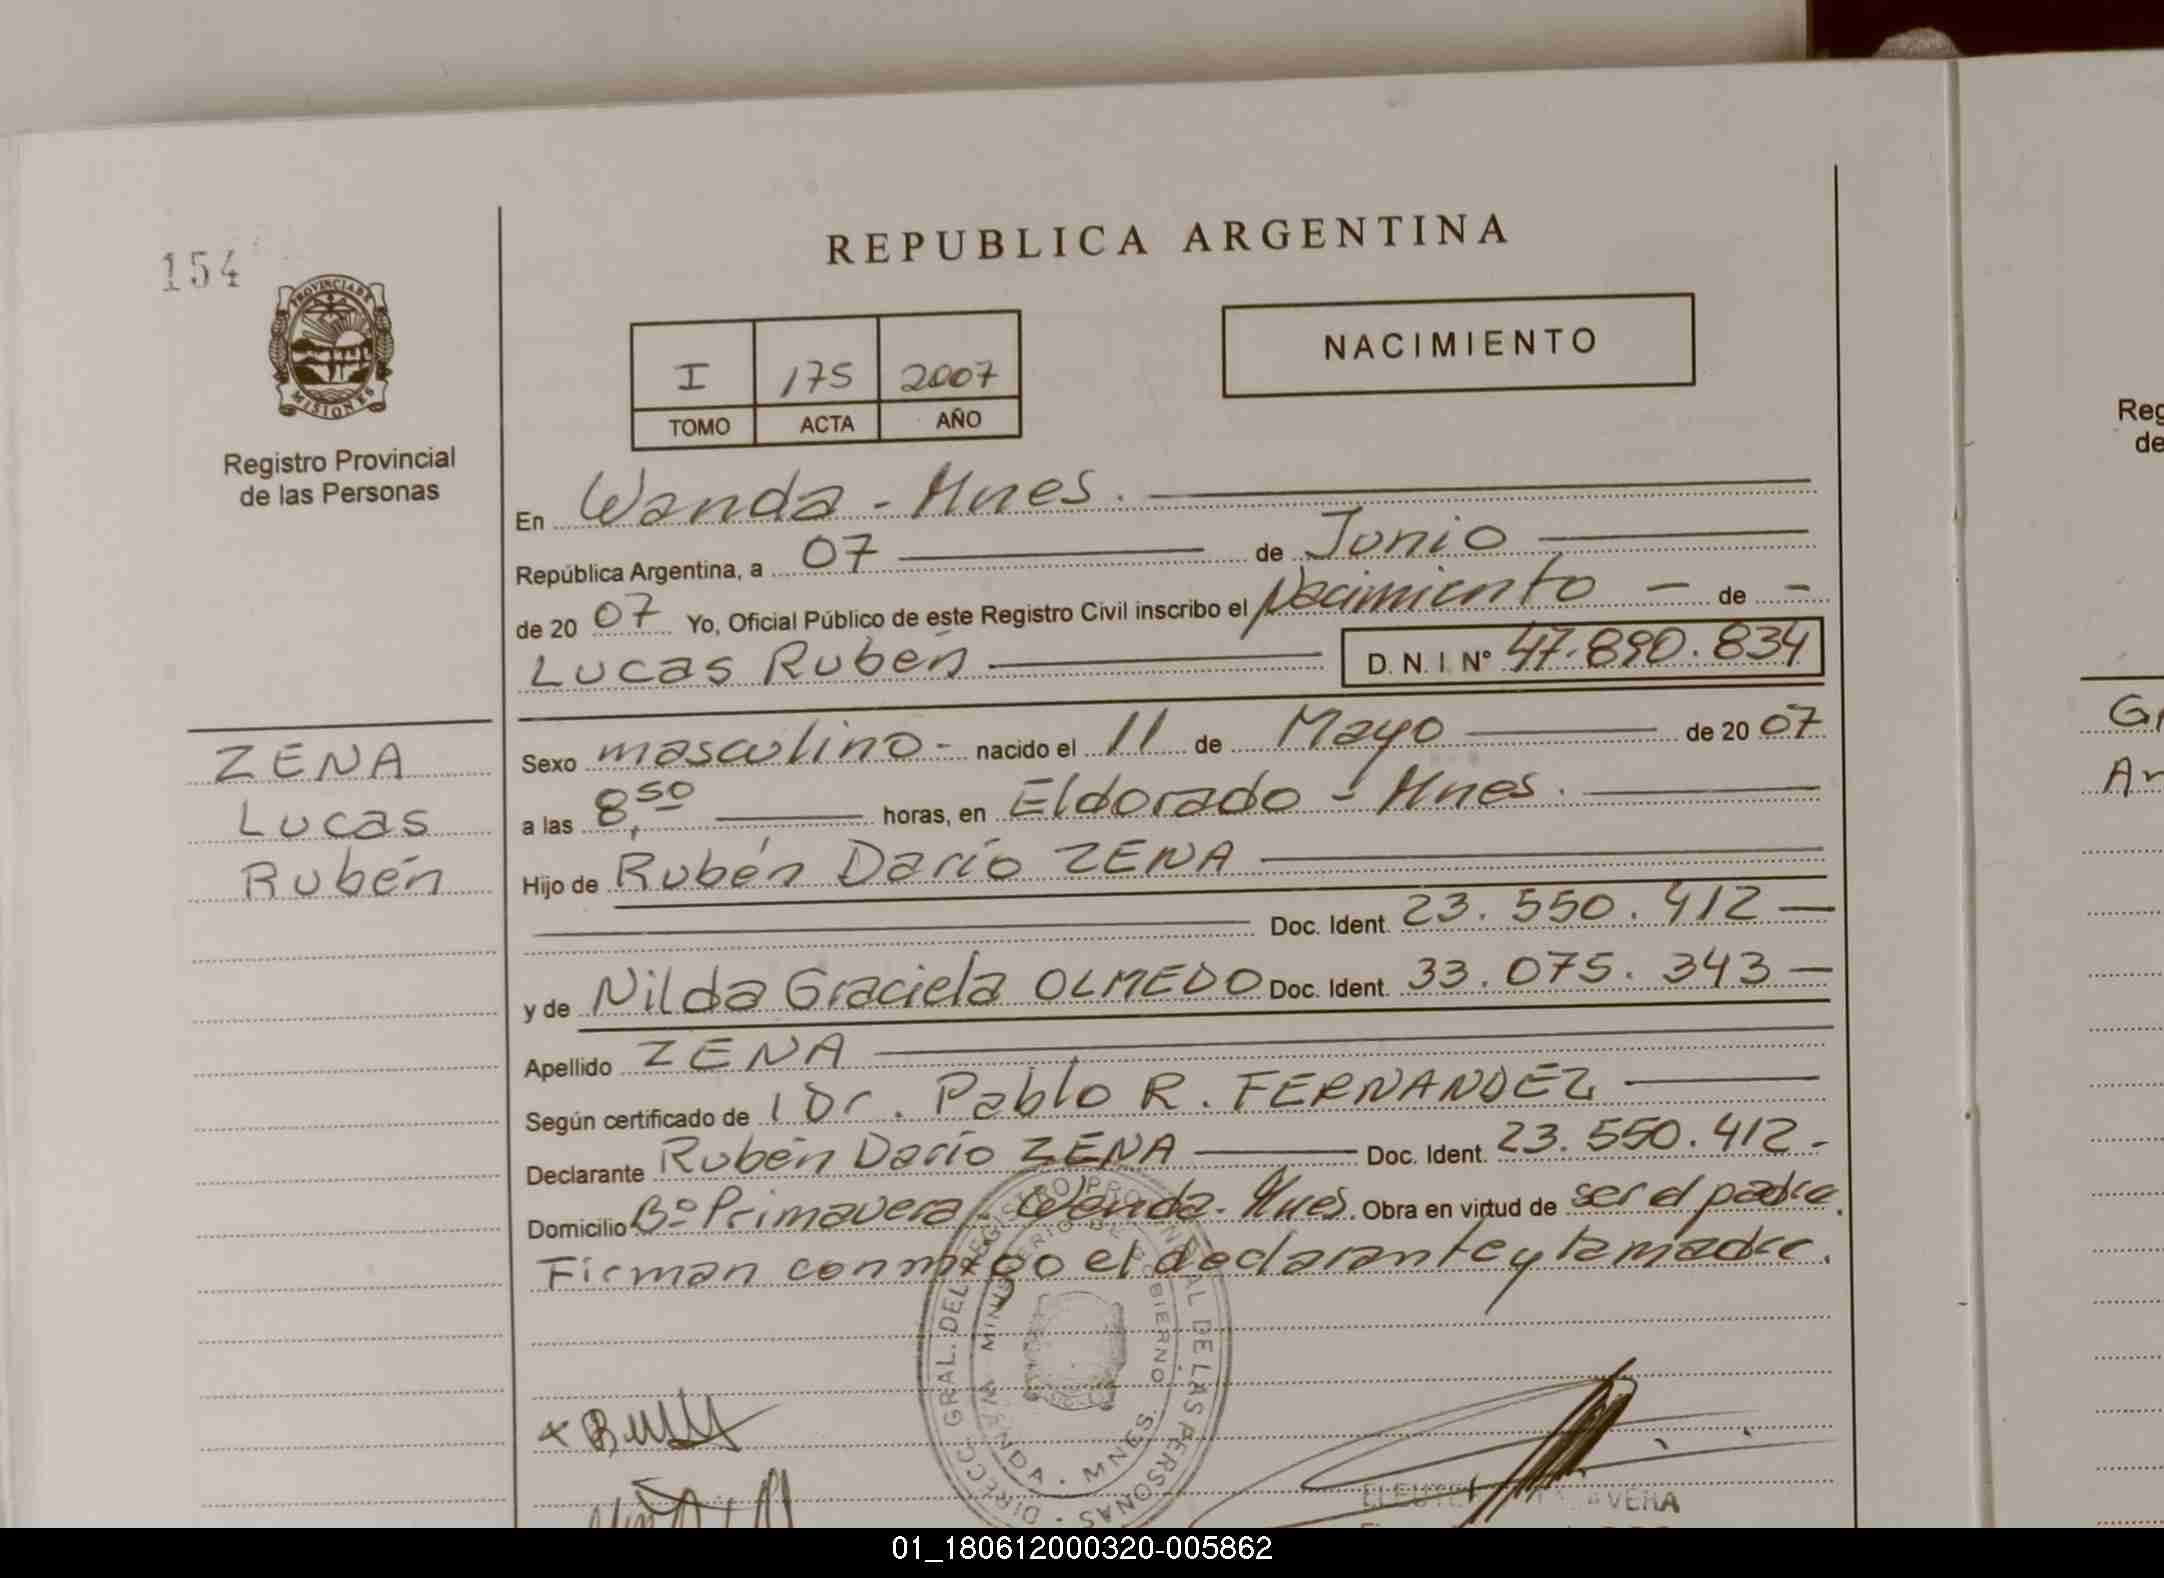 154
REPUBLICA ARGENTINA
PROVINCIA DE
MISIONES
Registro Provincial
de las Personas
I 175 2007
TOMO ACTA AÑO
NACIMIENTO
En Wanda - Mnes.
República Argentina, a 07 de Junio
de 20 07 Yo, Oficial Público de este Registro Civil inscribo el Nacimiento - de -
Lucas Rubén D. N. I. Nº 47.890.834
ZENA
Lucas
Rubén
Sexo masculino - nacido el 11 de Mayo de 20 07
a las 8,50 horas, en Eldorado - Mnes.
Hijo de Rubén Darío ZENA
Doc. Ident. 23.550.412 -
y de Nilda Graciela OLMEDO Doc. Ident. 33.075.343 -
Apellido ZENA
Según certificado de 1 Dr. Pablo R. FERNANDEZ
Declarante Rubén Darío ZENA Doc. Ident. 23.550.412 -
Domicilio Bº Primavera - Wanda - Mnes. Obra en virtud de ser el padre.
Firman conmigo el declarante y la madre.
DIRECC. GRAL. DEL REGISTRO PROVINCIAL DE LAS PERSONAS
MINISTERIO DE GOBIERNO
WANDA - MNES.
Reg
de
G
Ar
01_180612000320-005862